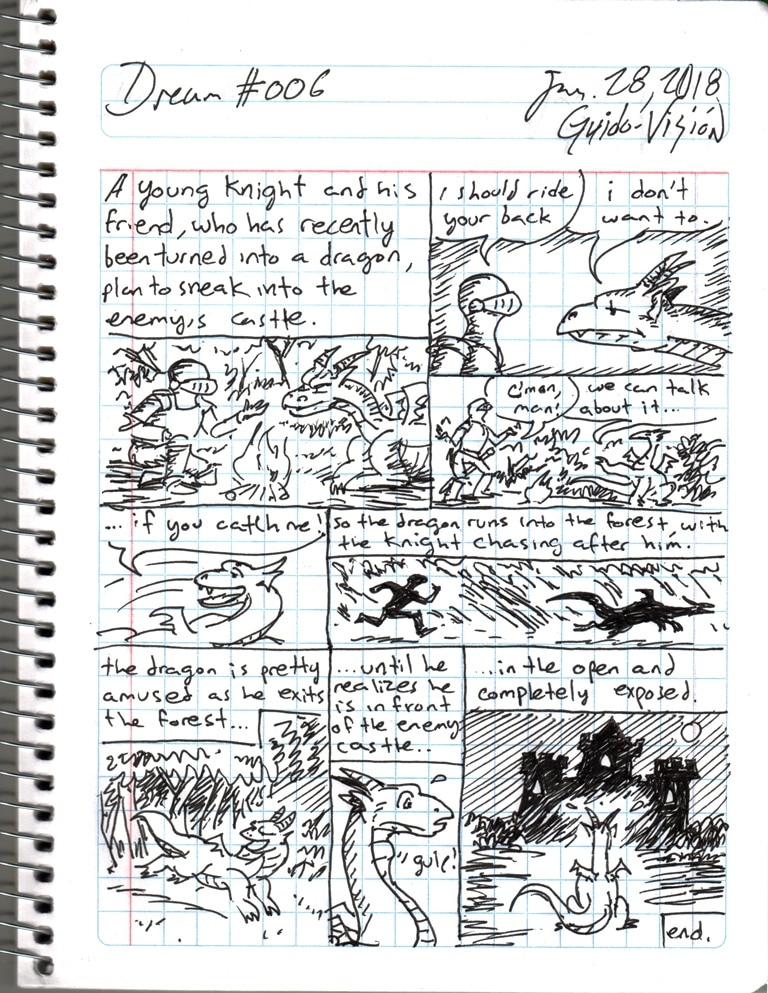 Dream #006
Jan. 28, 2018
Guido-Visión
A young knight and his
friend, who has recently
been turned into a dragon,
plan to sneak into the
enemy,s castle.
I should ride
your back
i don't
want to.
C'mon,
man!
we can talk
about it...
... if you catch me!
So the dragon runs into the forest, with
the knight chasing after him.
the dragon is pretty
amused as he exits
the forest...
...until he
realizes he
is in front
of the enemy
castle..
"gulp!"
...in the open and
completely exposed.
end.